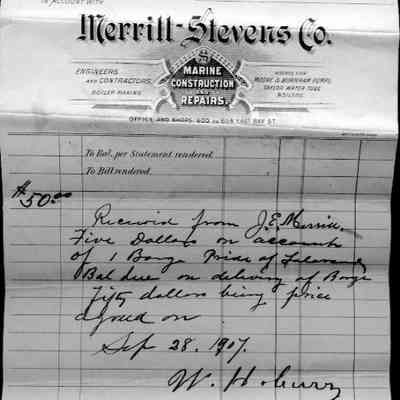 IN ACCOUNT WITH
Merrill-Stevens Co.
ENGINEERS
AND CONTRACTORS,
BOILER MAKING
MARINE
CONSTRUCTION
AND
REPAIRS.
AGENTS FOR
MOORE & BURNHAM PUMPS,
TAYLOR WATER TUBE
BOILERS
OFFICE AND SHOPS: 600 to 608 EAST BAY ST.
To Bal. per Statement rendered.
To Bill rendered.
$50.00
Received from J.E. Merrill
Five Dollars on account
of 1 Barge Pride of
Bal due on delivery of Barge
Fifty dollars being price
agreed on
Sep 28. 1907.
W. H.